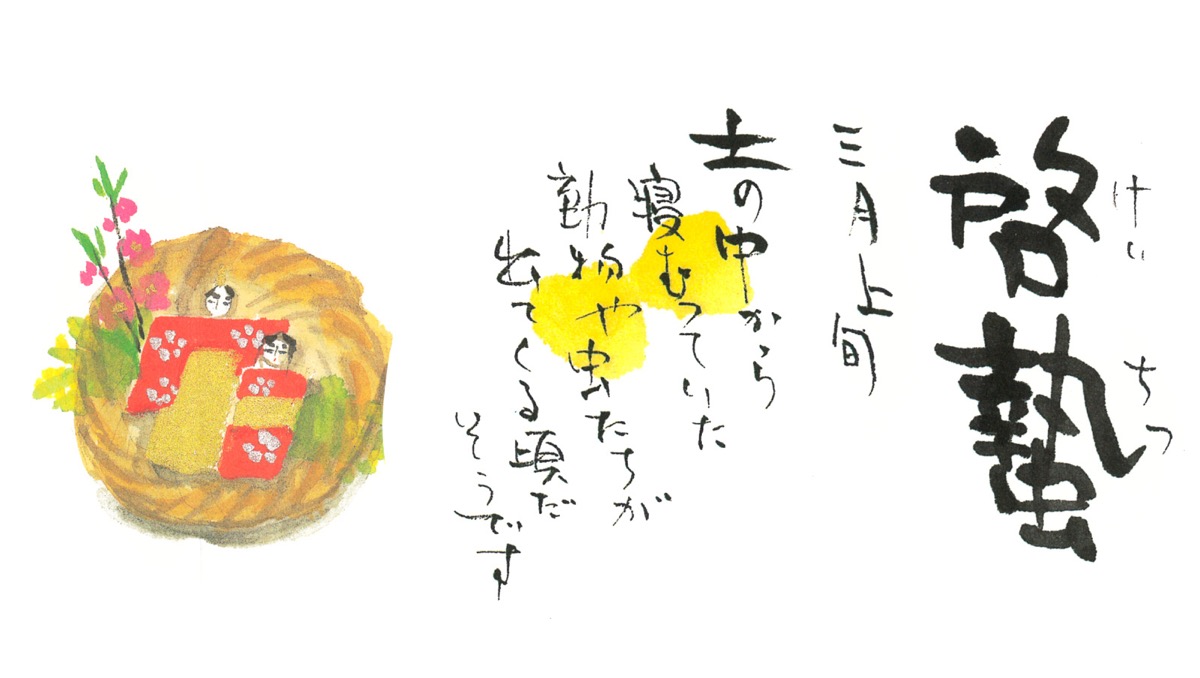 啓蟄
けい ちつ
三月上旬
土の中から
寝むっていた
動物や虫たちが
出てくる頃だ
そうです